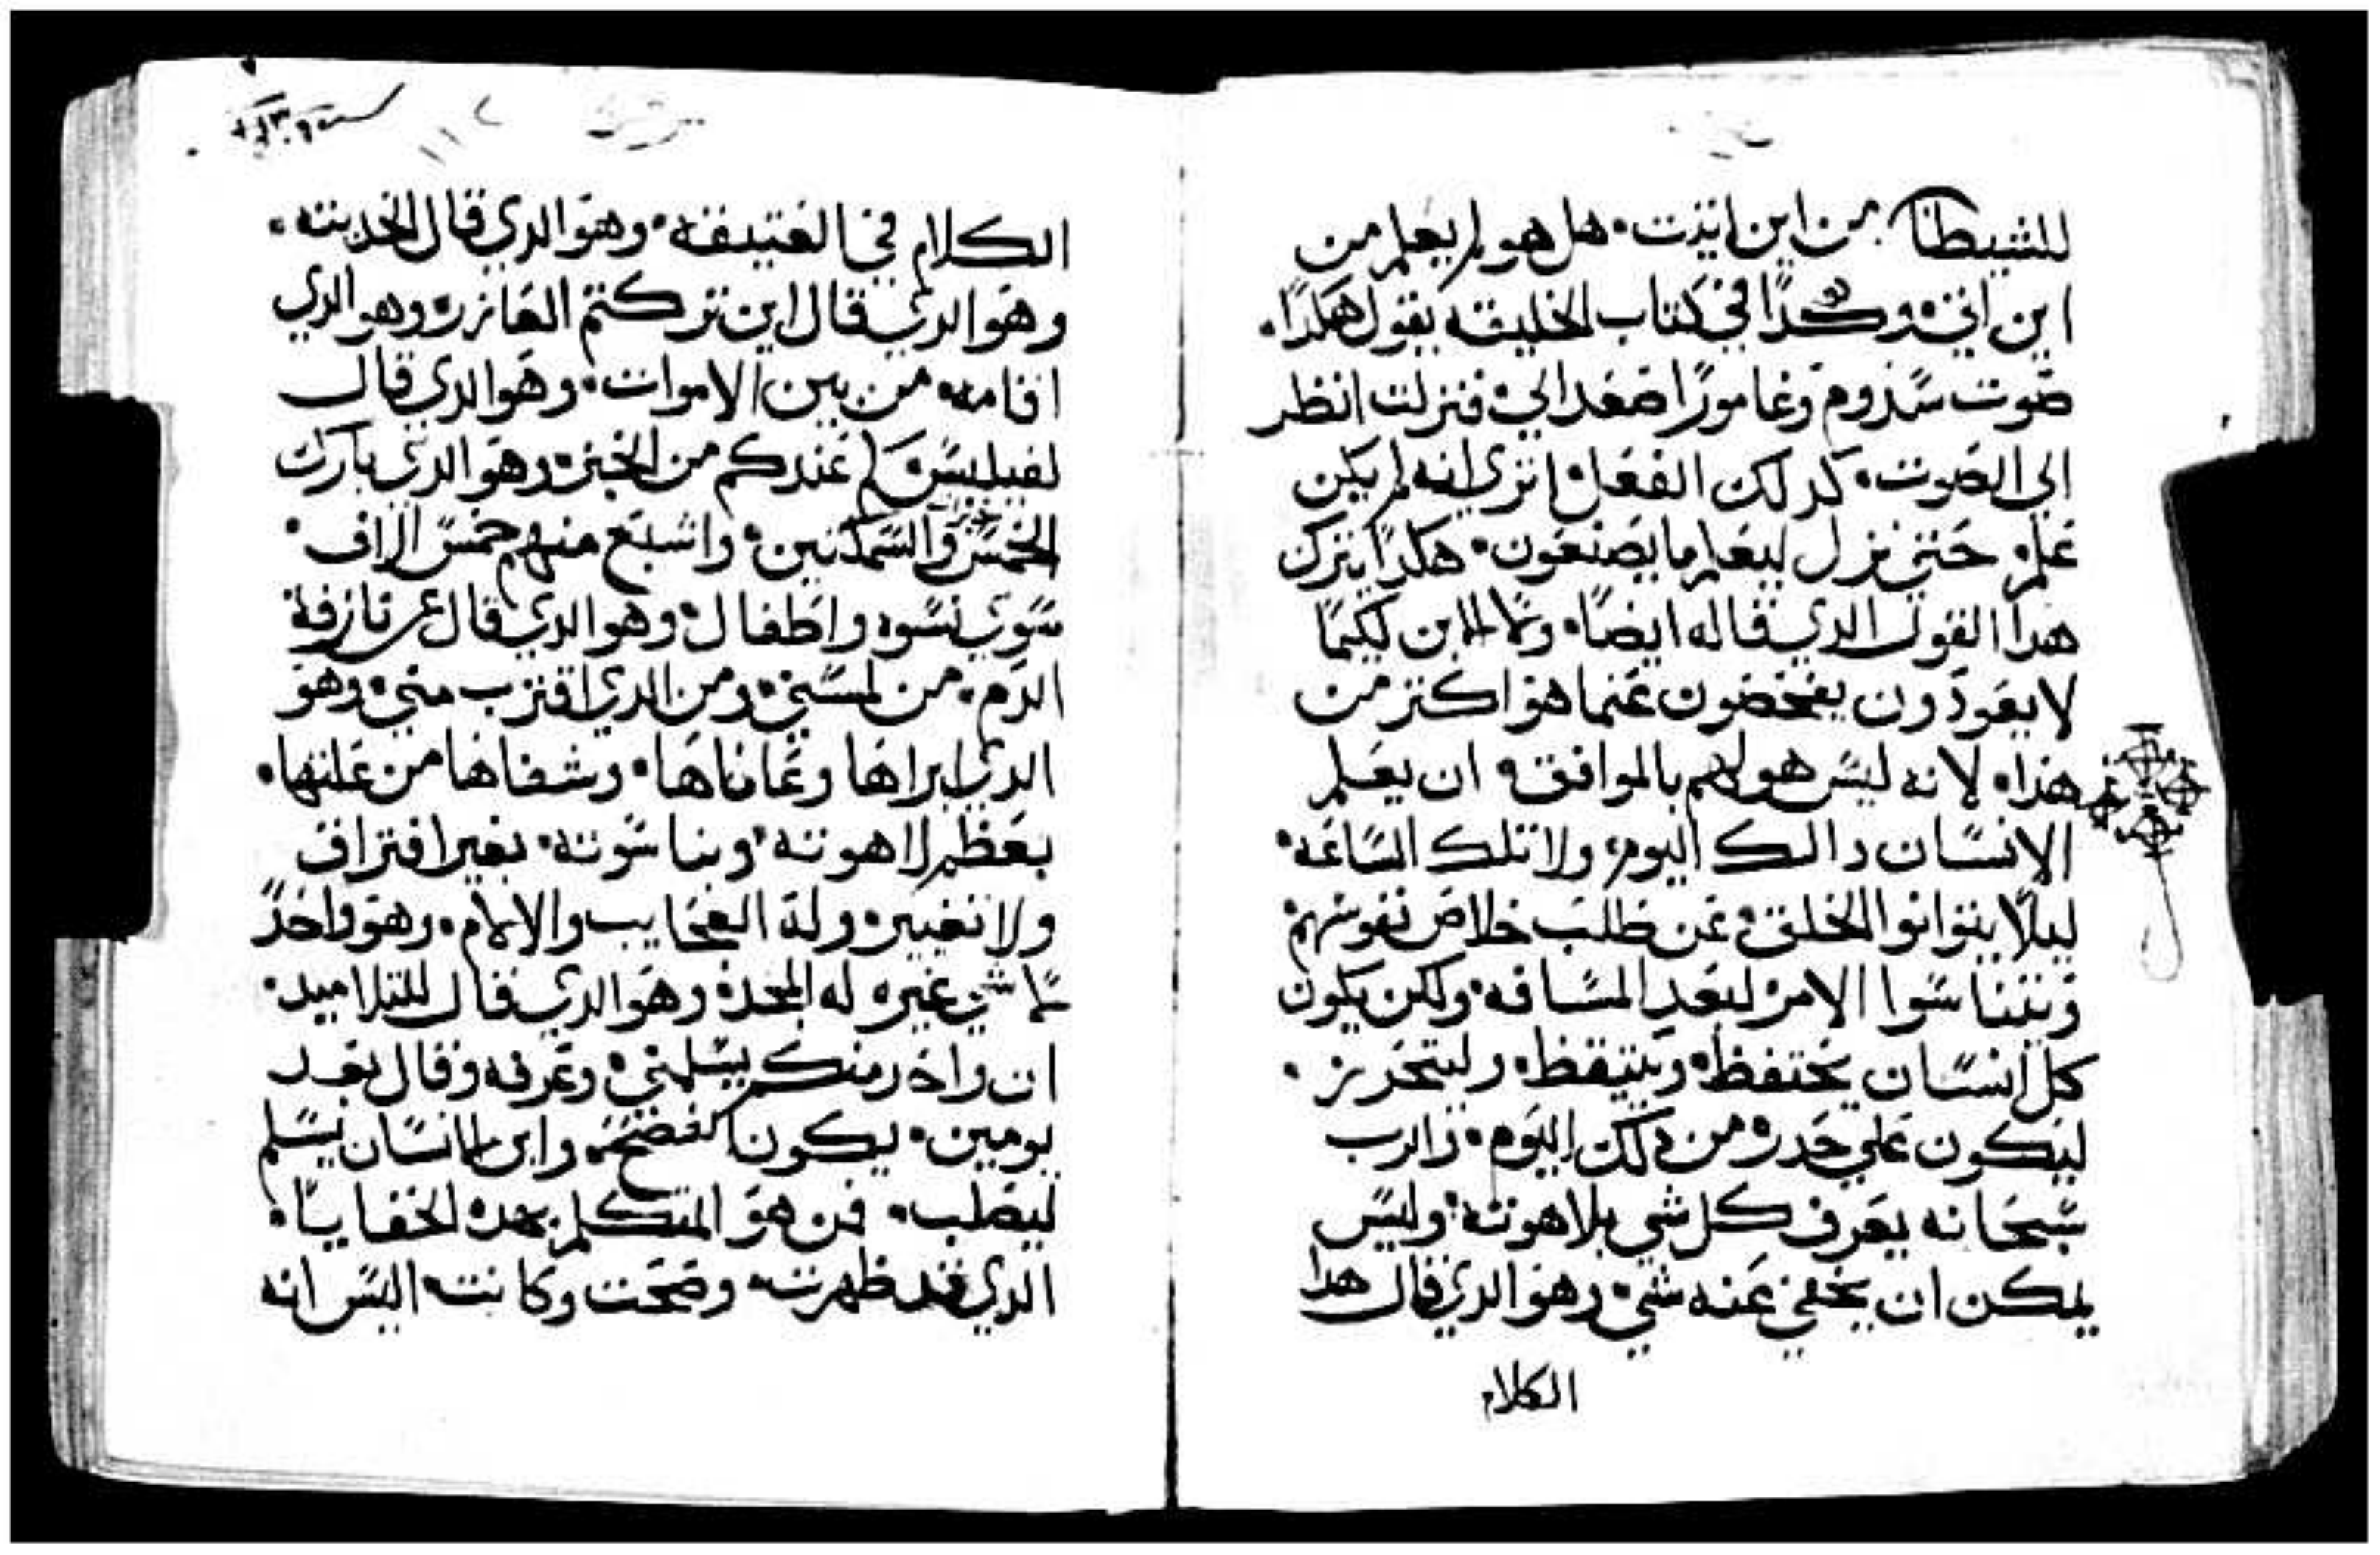 للشيطان من اين اتيت. هل هو لم يعلم من
اين اتي. وكدا في كتاب الخليقه يقول هكدا.
صوت سدوم وغامورا صعد الي. فنزلت انظر
الي الصوت. كدلك الفعل. اتري انه لم يكن
علم. حتي نزل ليعلم ما يصنعون. هكدا يترك
هدا القول الدي قاله ايضا. ولا الابن لكيما
لا يعودون يفحصون عنما هو اكتر من
هدا. لانه ليس هو لهم بالموافق. ان يعلم
الانسان دالك اليوم. ولا تلك الساعه.
ليلا يتوانوا الخلق. عن طلب خلاص نفوسهم
ويتناسوا الامر لبعد المسافه. ولكن يكون
كل انسان يحتفظ. ويتيقظ. وليتحرز.
ليكون علي حدر. من دلك اليوم. والرب
سبحانه يعرف كل شي بلاهوته. وليس
يمكن ان يخفي عنه شي. وهو الدي قال هدا
الكلام
الكلام في العتيقه. وهو الدي قال الحديته.
وهو الدي قال اين تركتم العازر. وهو الدي
اقامه من بين الاموات. وهو الدي قال
لفيلبس كم عندكم من الخبز. وهو الدي بارك
الخمس والسمكتين. واشبع منهم خمس الاف.
سوي نسوه واطفال. وهو الدي قال عن نازفة
الدم. من لمسني. ومن الدي اقترب مني. وهو
الدي ابراها وعافاها. وشفاها من علتها.
بعظم لاهوته. وبناسوته. بغير افتراق
ولا تغيير. وله العجايب والالام. وهو واحد
شي غيره له المجد. وهو الدي قال للتلاميد.
ان واحد منكم يسلمني. وعرفه وقال بعد
يومين. يكون الفصح. وابن الانسان يسلم
ليصلب. فمن هو المتكلم بهده الخفايا.
الدي قد ظهرت. وصحت وكانت. اليس انه